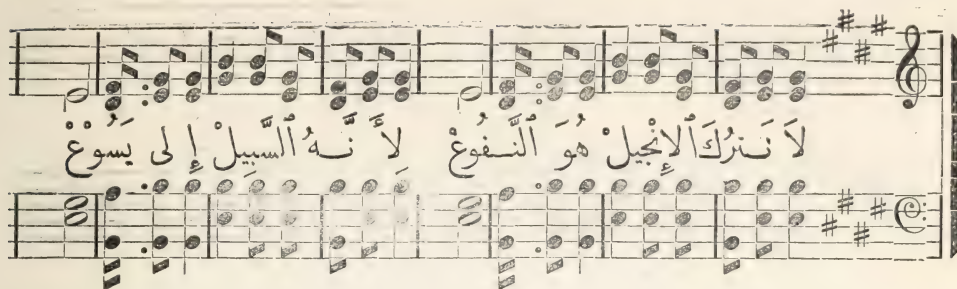 لاَ نَتْرُكَ ٱلإِنْجيلْ هُوَ ٱلنَّفُوعْ لأَنَّهُ ٱلسَّبِيلْ إِلى يَسُوْعْ